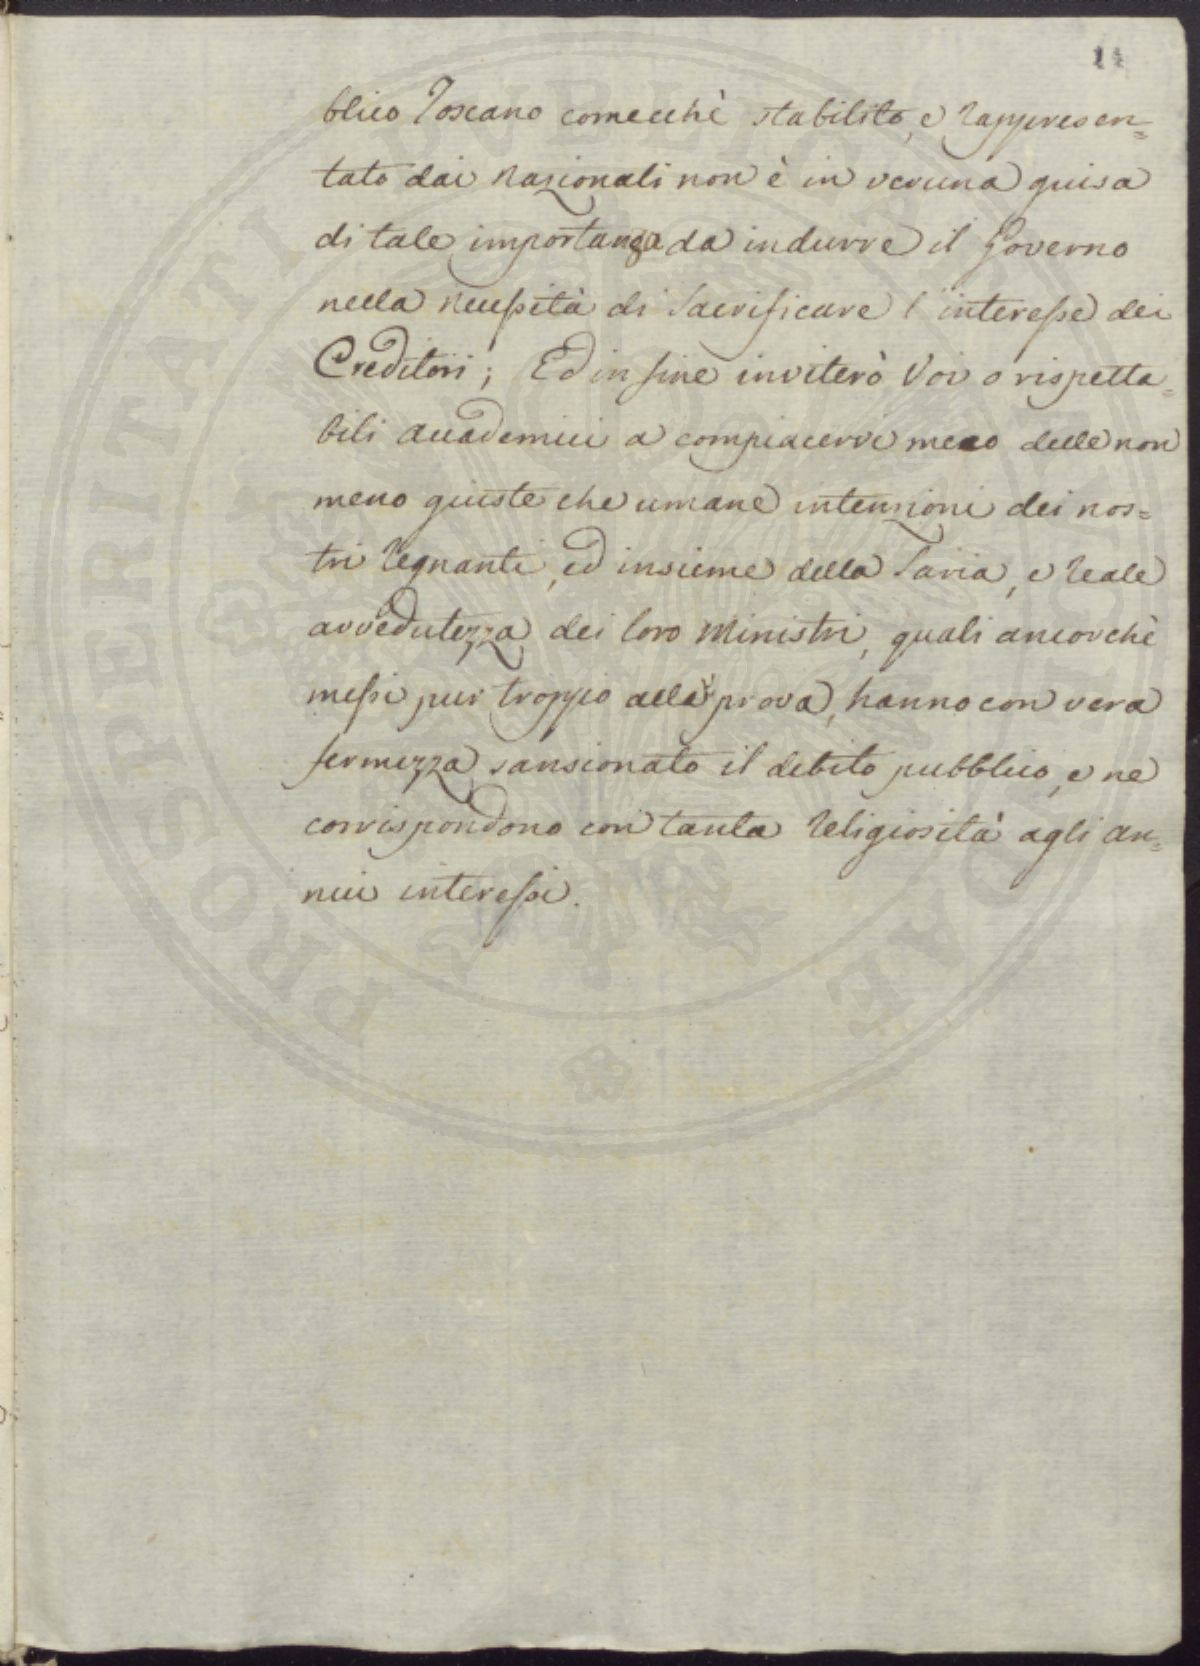 14
blico Toscano comecchè stabilito, e rappresen=
tato dai Nazionali non è in veruna guisa
di tale importanza da indurre il Governo
nella necessità di sacrificare l'interesse dei
Creditori; Ed in fine inviterò Voi o rispetta=
bili Accademici a compiacervi meco delle non
meno giuste che umane intenzioni dei nos=
tri Regnanti, ed insieme della savia, e leale
avvedutezza dei loro Ministri, quali ancorchè
messi pur troppo alla prova, hanno con vera
fermezza sansionato il debito pubblico, e ne
corrispondono con tanta religiosità agli an=
nui interessi.
PROSPERITATI PUBLICAE AUGENDAE